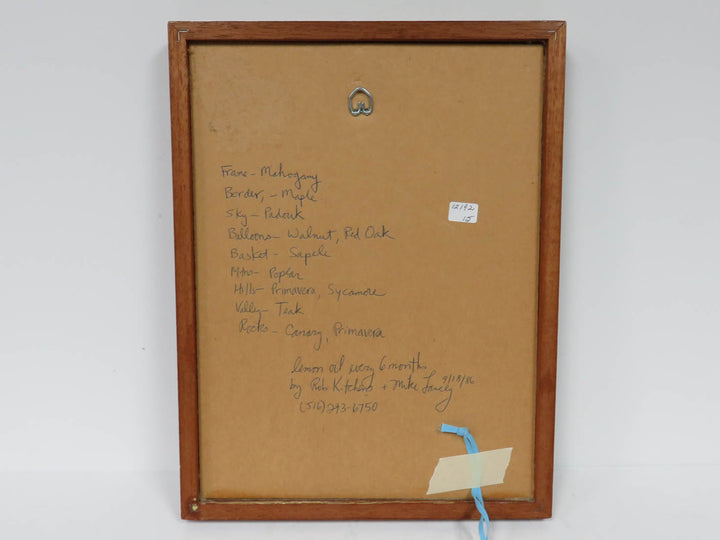 Frame - Mahogany
Border, - Maple
Sky - Padouk
12192
15
Balloons - Walnut, Red Oak
Basket - Sapele
Mtns - Poplar
Hills - Primavera, Sycamore
Valley - Teak
Rocks - Canary, Primavera
lemon oil every 6 months
by Rob Kitchens + Mike 9/18/86
(516) 293-6750